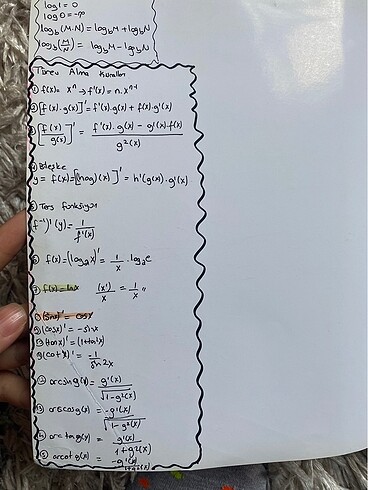 log1 = 0
log0 = -∞
log_b(M.N) = log_bM + log_bN
log_b(M/N) = log_bM - log_bN
Türev Alma Kuralları
① f(x) = xⁿ → f'(x) = n.xⁿ⁻¹
② [f(x).g(x)]' = f'(x).g(x) + f(x).g'(x)
③ [f(x)/g(x)]' = (f'(x).g(x) - g'(x).f(x))/g²(x)
④ Bileşke
y = f(x) = [(hog)(x)]' = h'(g(x)).g'(x)
⑤ Ters fonksiyon
f⁻¹)'(y) = 1/f'(x)
⑥ f(x) = (log_a x)' = 1/x . log_a e
⑦ f(x) = lnx (x')/x = 1/x "
(sinx)' = cosx
(cosx)' = -sinx
(tanx)' = (1+tan²x)
(cotx)' = -1/sin²x
⑫ arcsin g(x) = g'(x)/√(1-g²(x))
⑬ arccos g(x) = -g'(x)/√(1-g²(x))
arctan g(x) = g'(x)/(1+g²(x))
arccot g(x) = -g'(x)/(1+g²(x))